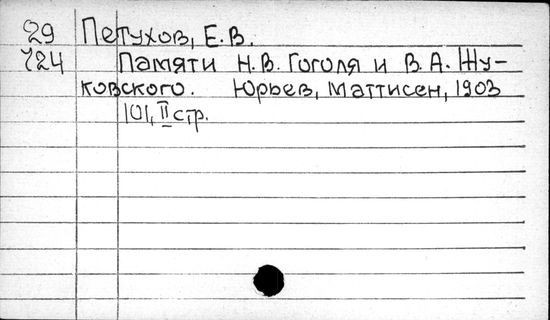 29 Петухов, Е.В.
724 Памяти Н.В. Гоголя и В.А. Жу-
ковского. Юрьев, Маттисен, 1903
101, II стр.